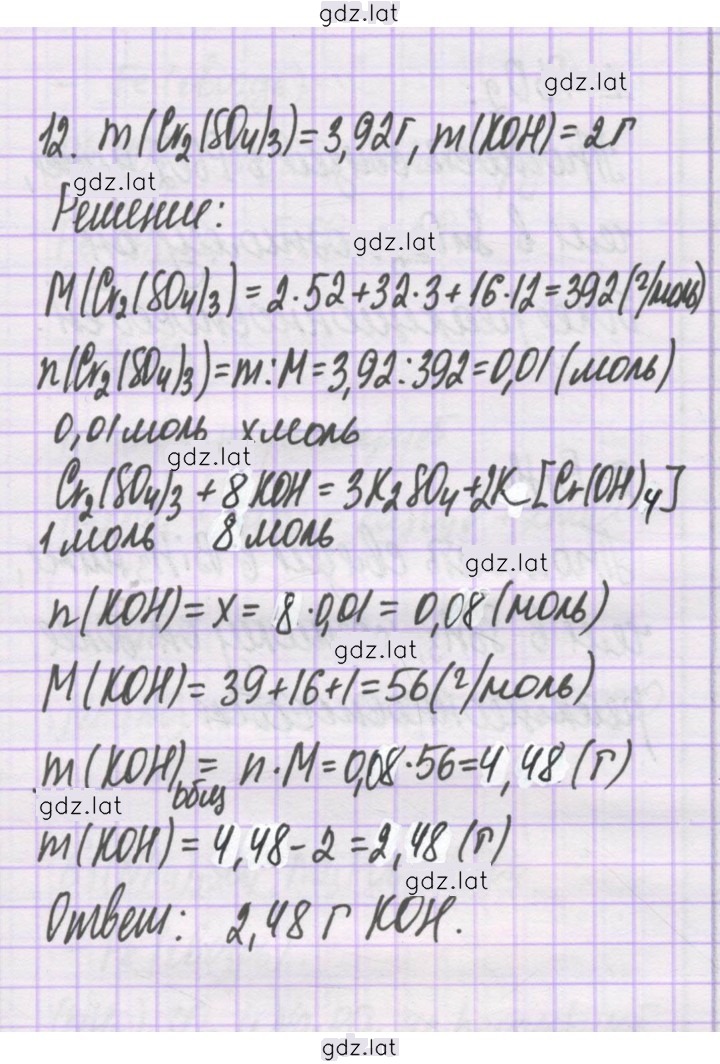 gdz.lat
gdz.lat
12. m(Cr₂(SO₄)₃) = 3,92г, m(KOH) = 2г
gdz.lat
Решение:
gdz.lat
M(Cr₂(SO₄)₃) = 2·52+32·3+16·12=392(г/моль)
n(Cr₂(SO₄)₃)=m:M=3,92:392=0,01(моль)
0,01моль xмоль
gdz.lat
Cr₂(SO₄)₃ + 8KOH = 3K₂SO₄+2K[Cr(OH)₄]
1моль 8моль
gdz.lat
n(KOH)=x= 8·0,01 = 0,08(моль)
gdz.lat
M(KOH)= 39+16+1=56(г/моль)
m(KOH)общ = n·M=0,08·56=4,48(г)
gdz.lat
m(KOH)= 4,48-2=2,48(г)
gdz.lat
Ответ: 2,48 г KOH.
gdz.lat